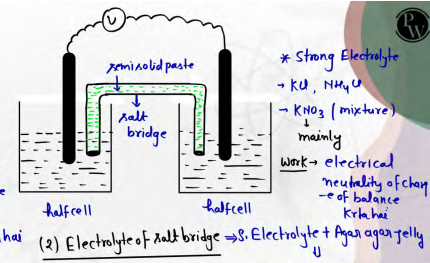 V
P
W
semisolid paste
salt
bridge
* Strong Electrolyte
→ KCl, NH4Cl
→ KNO3 (mixture)
↓
mainly
work → electrical
neutrality of charg
-e of balance
Krta hai
e
halfcell
halfcell
hai
(2) Electrolyte of salt bridge ⇒ S. Electrolyte + Agar agar jelly
⇓